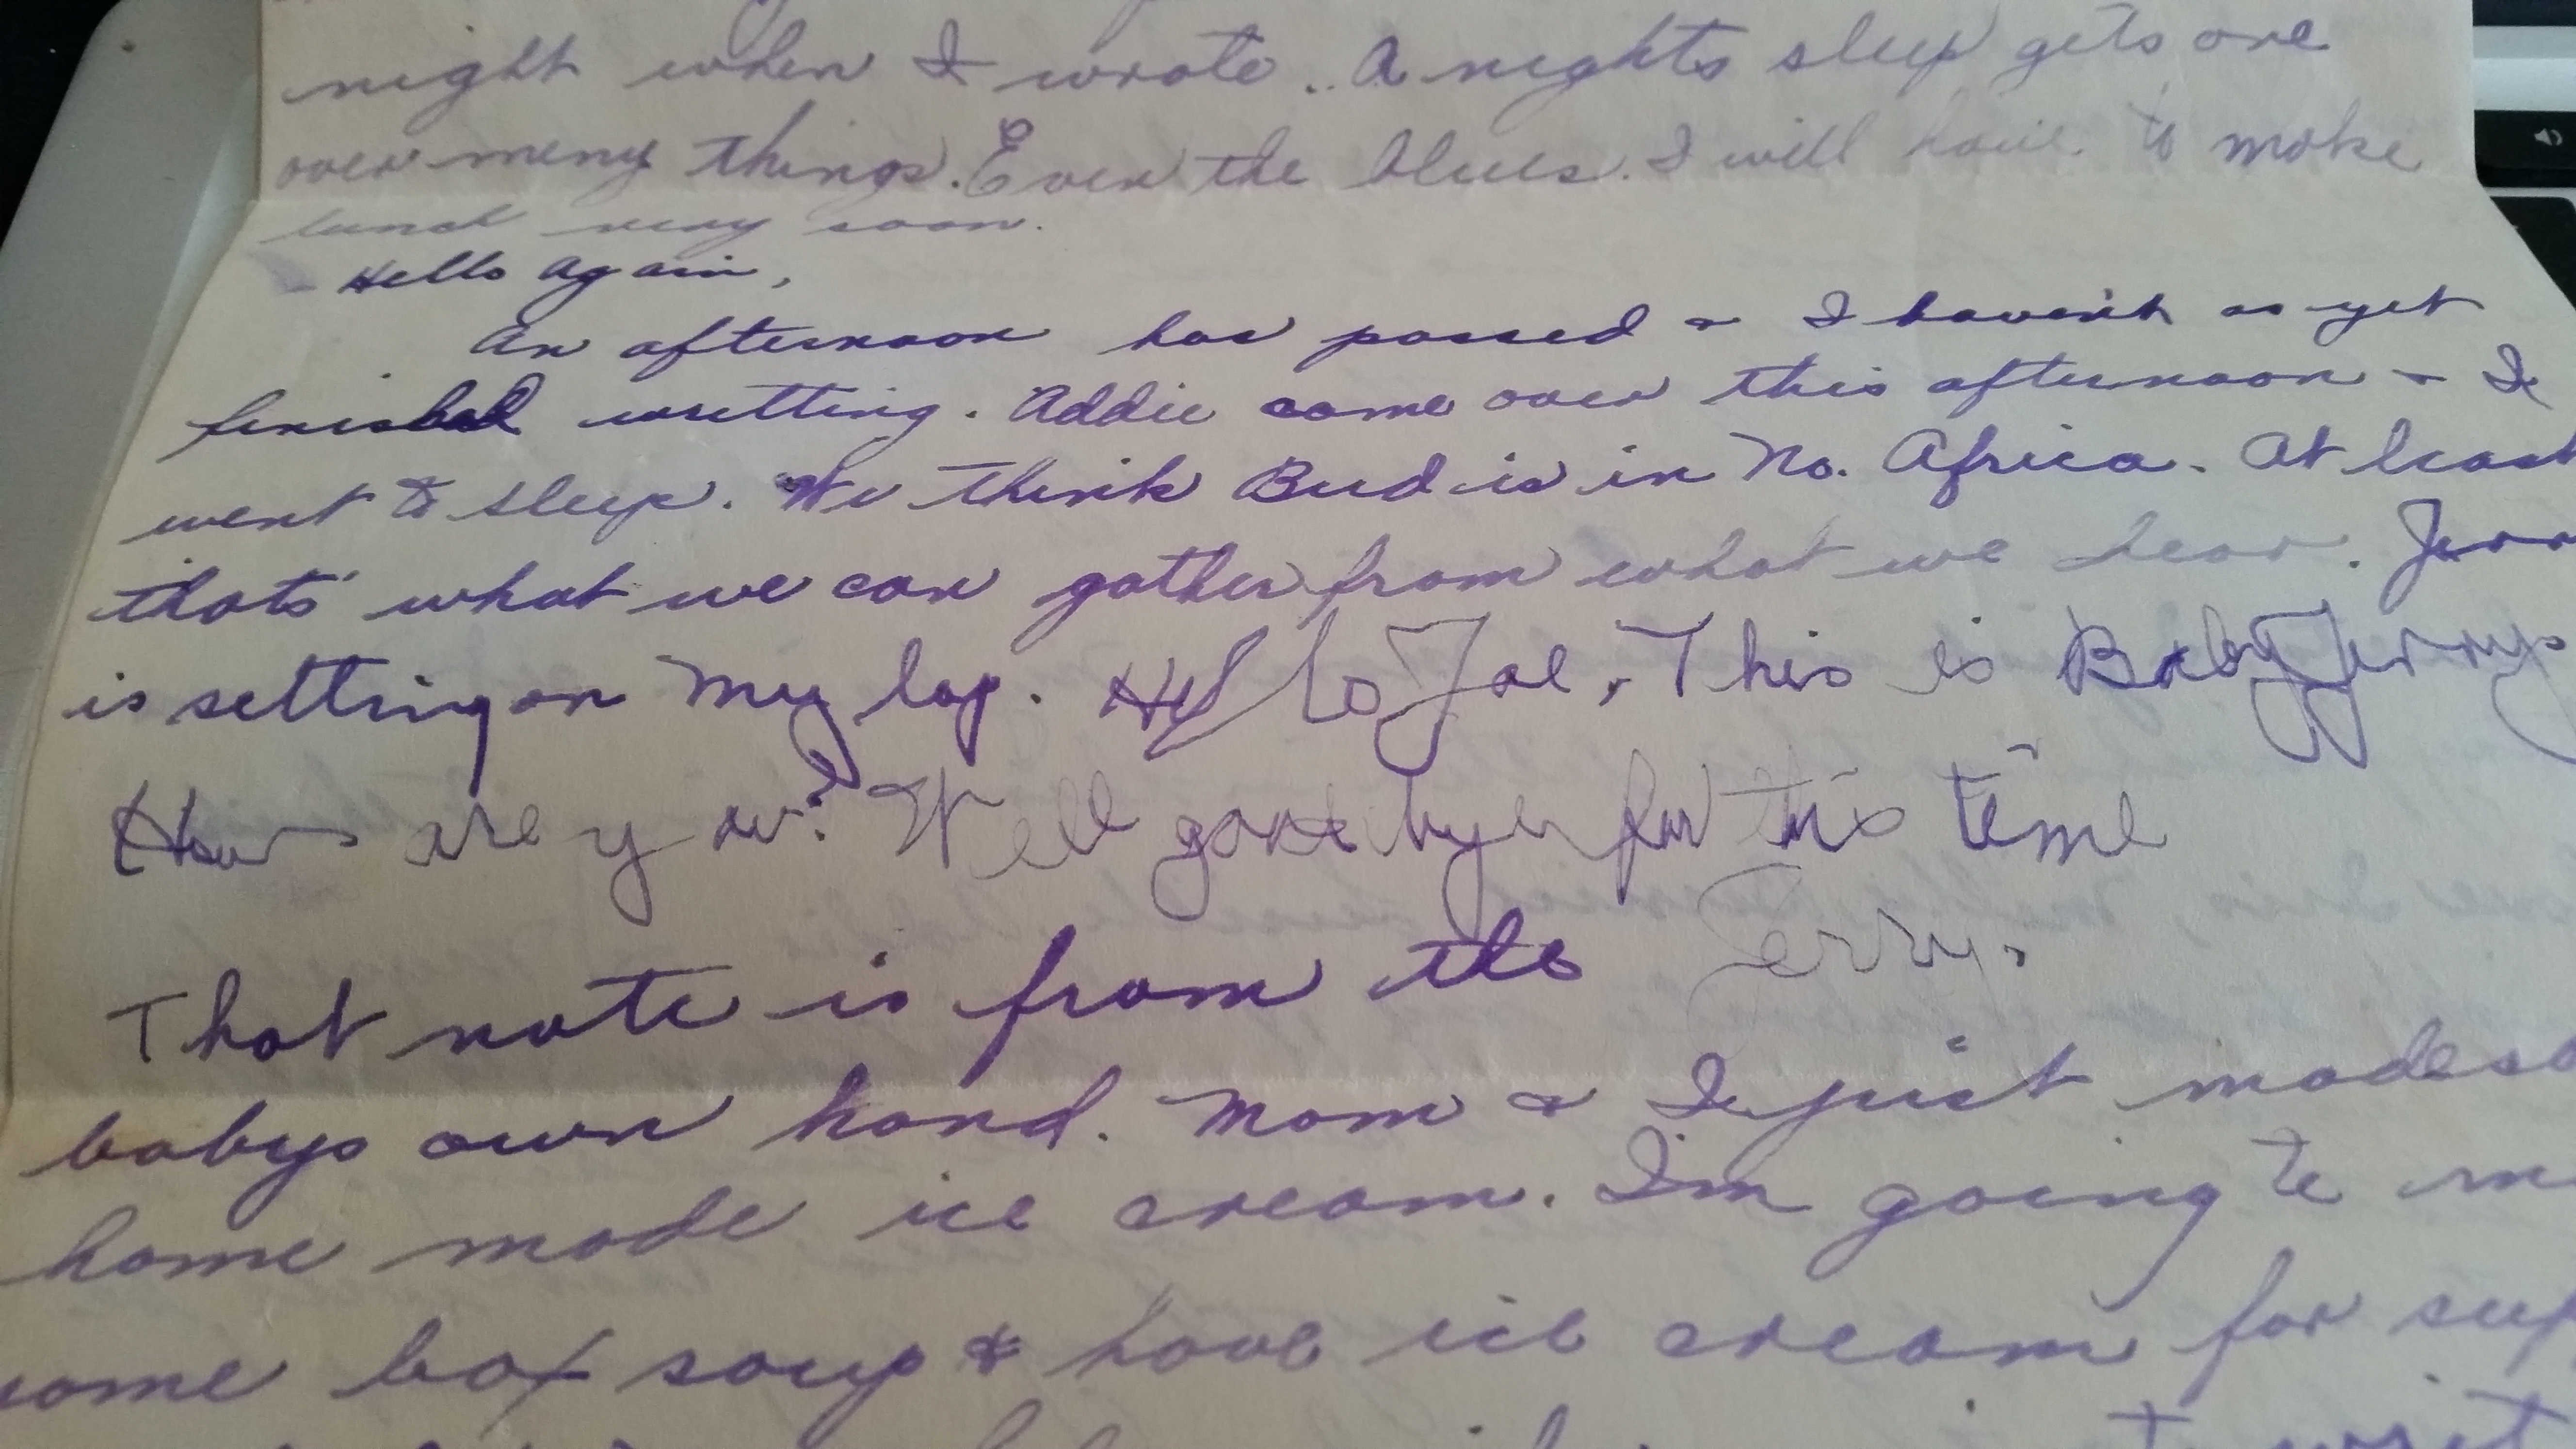 night when I wrote. A nights sleep gets one
over meny things. Even the blues. I will have to make
lunch very soon.
Hello Again,
An afternoon has passed & I haven't as yet
finished writting. Addie came over this afternoon & I
went to sleep. We think Bud is in No. Africa. At least
that's what we can gather from what we hear. Jerry
is setting on my lap. Hello Joe, This is Baby Jerry
How are you? Well good bye for this time
Jerry.
That note is from the
babys own hand. Mom & I just made so
home made ice cream. I'm going to m
some box soup & have ice cream for sup